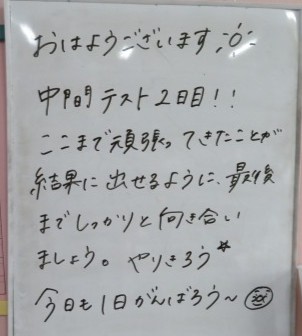 おはようございます
中間テスト2日目!!
ここまで頑張ってきたことが
結果に出せるように、最後
までしっかりと向き合い
ましょう。やりきろう☆
今日も1日がんばろう〜